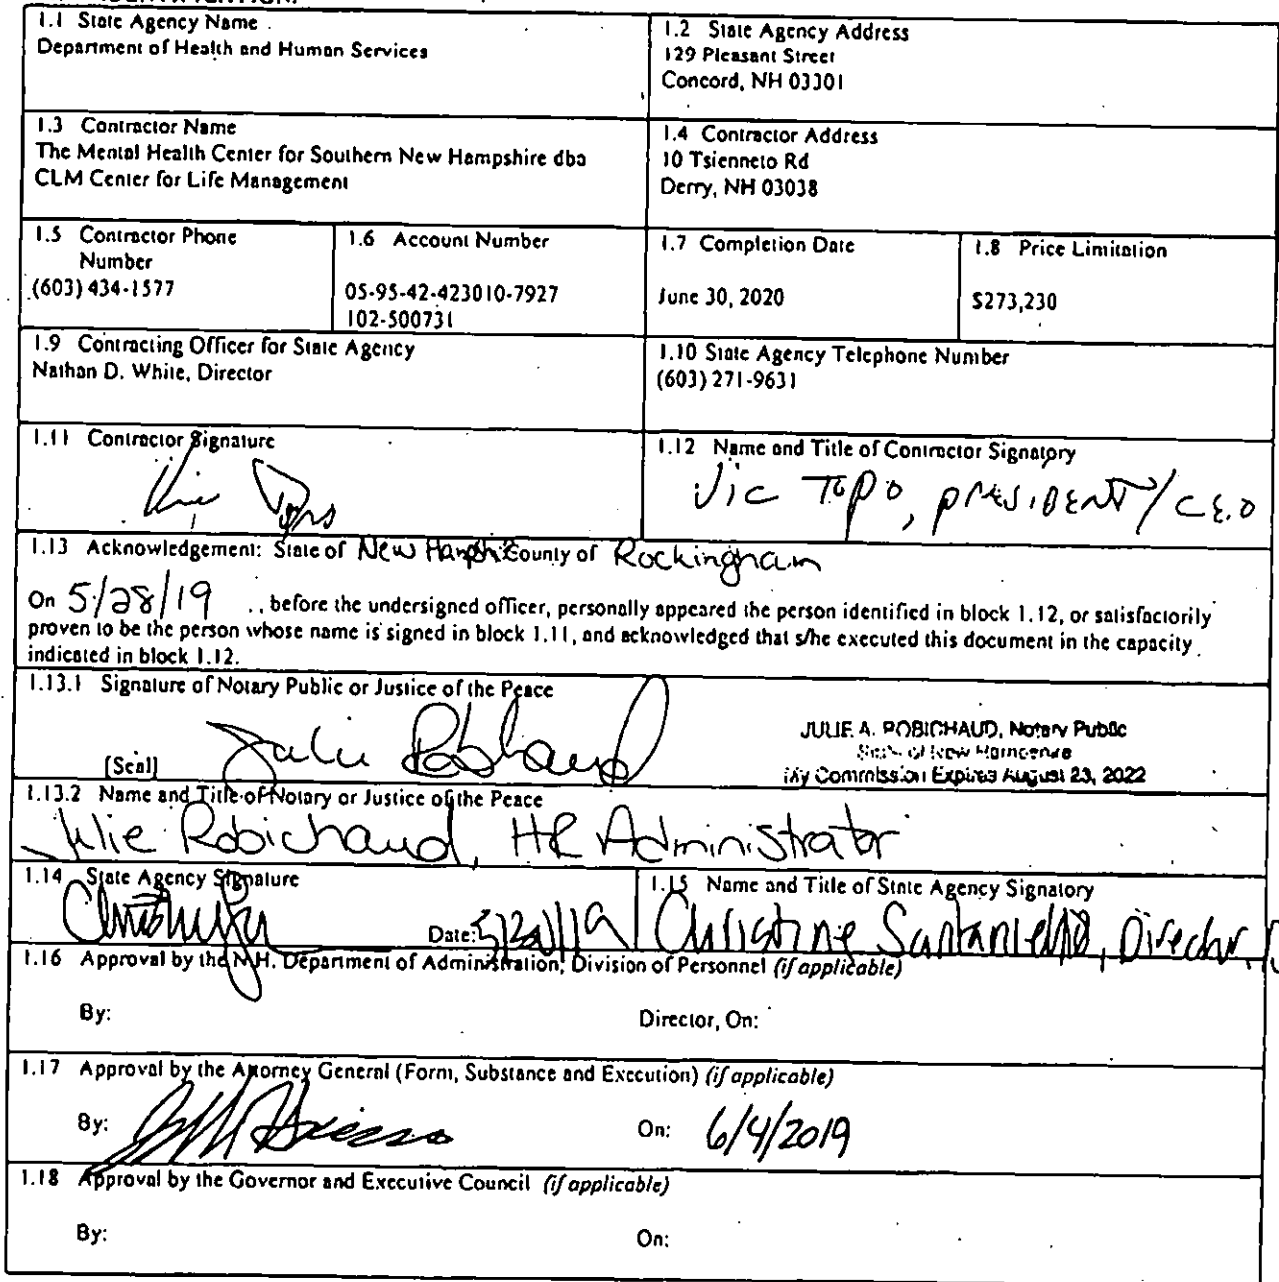 1.1 State Agency Name
Department of Health and Human Services
1.2 State Agency Address
129 Pleasant Street
Concord, NH 03301
1.3 Contractor Name
The Mental Health Center for Southern New Hampshire dba
CLM Center for Life Management
1.4 Contractor Address
10 Tsienneto Rd
Derry, NH 03038
1.5 Contractor Phone
Number
(603) 434-1577
1.6 Account Number
05-95-42-423010-7927
102-500731
1.7 Completion Date
June 30, 2020
1.8 Price Limitation
$273,230
1.9 Contracting Officer for State Agency
Nathan D. White, Director
1.10 State Agency Telephone Number
(603) 271-9631
1.11 Contractor Signature
Vic Topo
1.12 Name and Title of Contractor Signatory
Vic Topo, PRESIDENT/CEO
1.13 Acknowledgement: State of New Hampshire County of Rockingham
On 5/28/19 , before the undersigned officer, personally appeared the person identified in block 1.12, or satisfactorily
proven to be the person whose name is signed in block 1.11, and acknowledged that s/he executed this document in the capacity
indicated in block 1.12.
1.13.1 Signature of Notary Public or Justice of the Peace
[Seal] Julie Robichaud
JULIE A. ROBICHAUD, Notary Public
State of New Hampshire
My Commission Expires August 23, 2022
1.13.2 Name and Title of Notary or Justice of the Peace
Julie Robichaud, HR Administrator
1.14 State Agency Signature
Date:
1.15 Name and Title of State Agency Signatory
Christine Santaniello, Director
1.16 Approval by the N.H. Department of Administration, Division of Personnel (if applicable)
By: Director, On:
1.17 Approval by the Attorney General (Form, Substance and Execution) (if applicable)
By: On: 6/4/2019
1.18 Approval by the Governor and Executive Council (if applicable)
By: On: